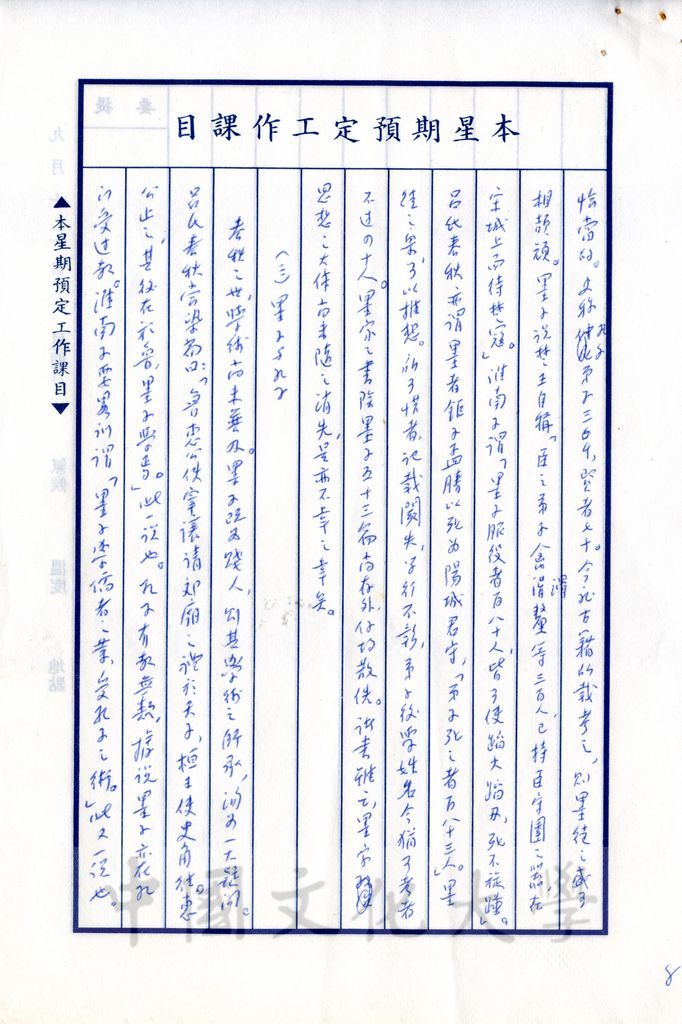 本星期預定工作課目
恰當的。史稱孔子弟子三千,賢者七十。今就古籍所載考之,則墨徒之盛可
相頡頏。墨子說楚王自稱「臣之弟子禽滑釐等三百人,已持臣守圉之器,在
宋城上而待楚寇。」淮南子謂「墨子服役者百八十人,皆可使蹈火蹈刃,死不旋踵」。
呂氏春秋亦謂墨者鉅子孟勝以死為陽城君守,「弟子死之者百八十三人。」墨
徒之眾可以推想。所可惜者,記載闕失,學行不彰,弟子後學姓名今猶可考者
不過四十人。墨家之書除墨子五十三篇尚存外,仍均散佚。諸書雖亡,墨家
思想之大体尚未隨之消失,是亦不幸之幸矣。
(三)墨子與孔子
春秋之世,學術尚未普及。墨子既為賤人,則其學術之所承,洵為一大疑問。
呂氏春秋當染篇曰:「魯惠公使宰讓請郊廟之禮於天子,桓王使史角往。惠
公止之,其後在於魯,墨子學焉。」此一說也。孔子有教無類,據說墨子亦在孔
門受過教。淮南子要畧訓謂「墨子學儒者之業,受孔子之術。」此又一說也。
▲本星期預定工作課目▼
中國文化大學
8